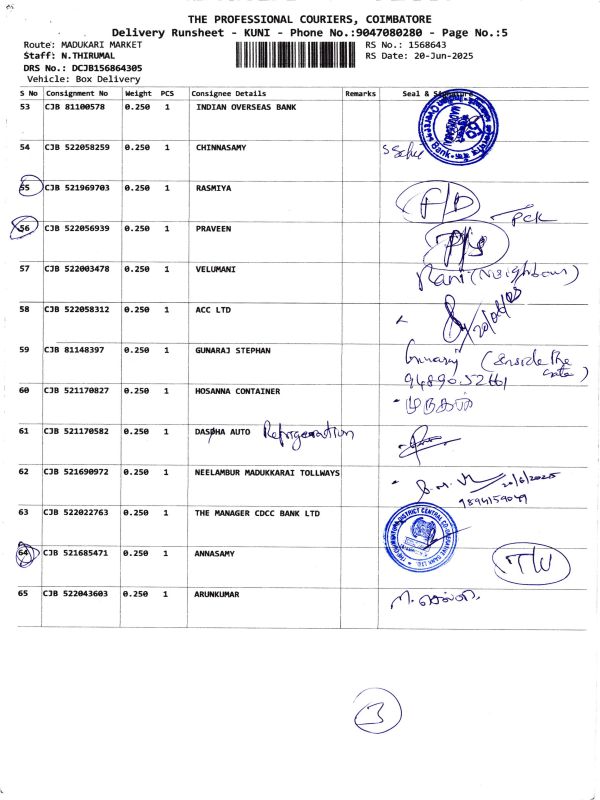 THE PROFESSIONAL COURIERS, COIMBATORE
Delivery Runsheet - KUNI - Phone No.:9047080280 - Page No.:5
Route: MADUKARI MARKET RS No.: 1568643
Staff: N.THIRUMAL RS Date: 20-Jun-2025
DRS No.: DCJB156864305
Vehicle: Box Delivery
S No Consignment No Weight PCS Consignee Details Remarks Seal & Signature
53 CJB 81100578 0.250 1 INDIAN OVERSEAS BANK
54 CJB 522058259 0.250 1 CHINNASAMY
55 CJB 521969703 0.250 1 RASMIYA F/D
PCK
56 CJB 522056939 0.250 1 PRAVEEN
57 CJB 522003478 0.250 1 VELUMANI Rani (Neighbour)
58 CJB 522058312 0.250 1 ACC LTD
59 CJB 81148397 0.250 1 GUNARAJ STEPHAN Gunaraj (Inside the Gate)
9489052661
60 CJB 521170827 0.250 1 HOSANNA CONTAINER முருகன்
61 CJB 521170582 0.250 1 DASPHA AUTO Refrigeration
62 CJB 521690972 0.250 1 NEELAMBUR MADUKKARAI TOLLWAYS 20/6/2025
9894159049
63 CJB 522022763 0.250 1 THE MANAGER CDCC BANK LTD
64 CJB 521685471 0.250 1 ANNASAMY
65 CJB 522043603 0.250 1 ARUNKUMAR
3